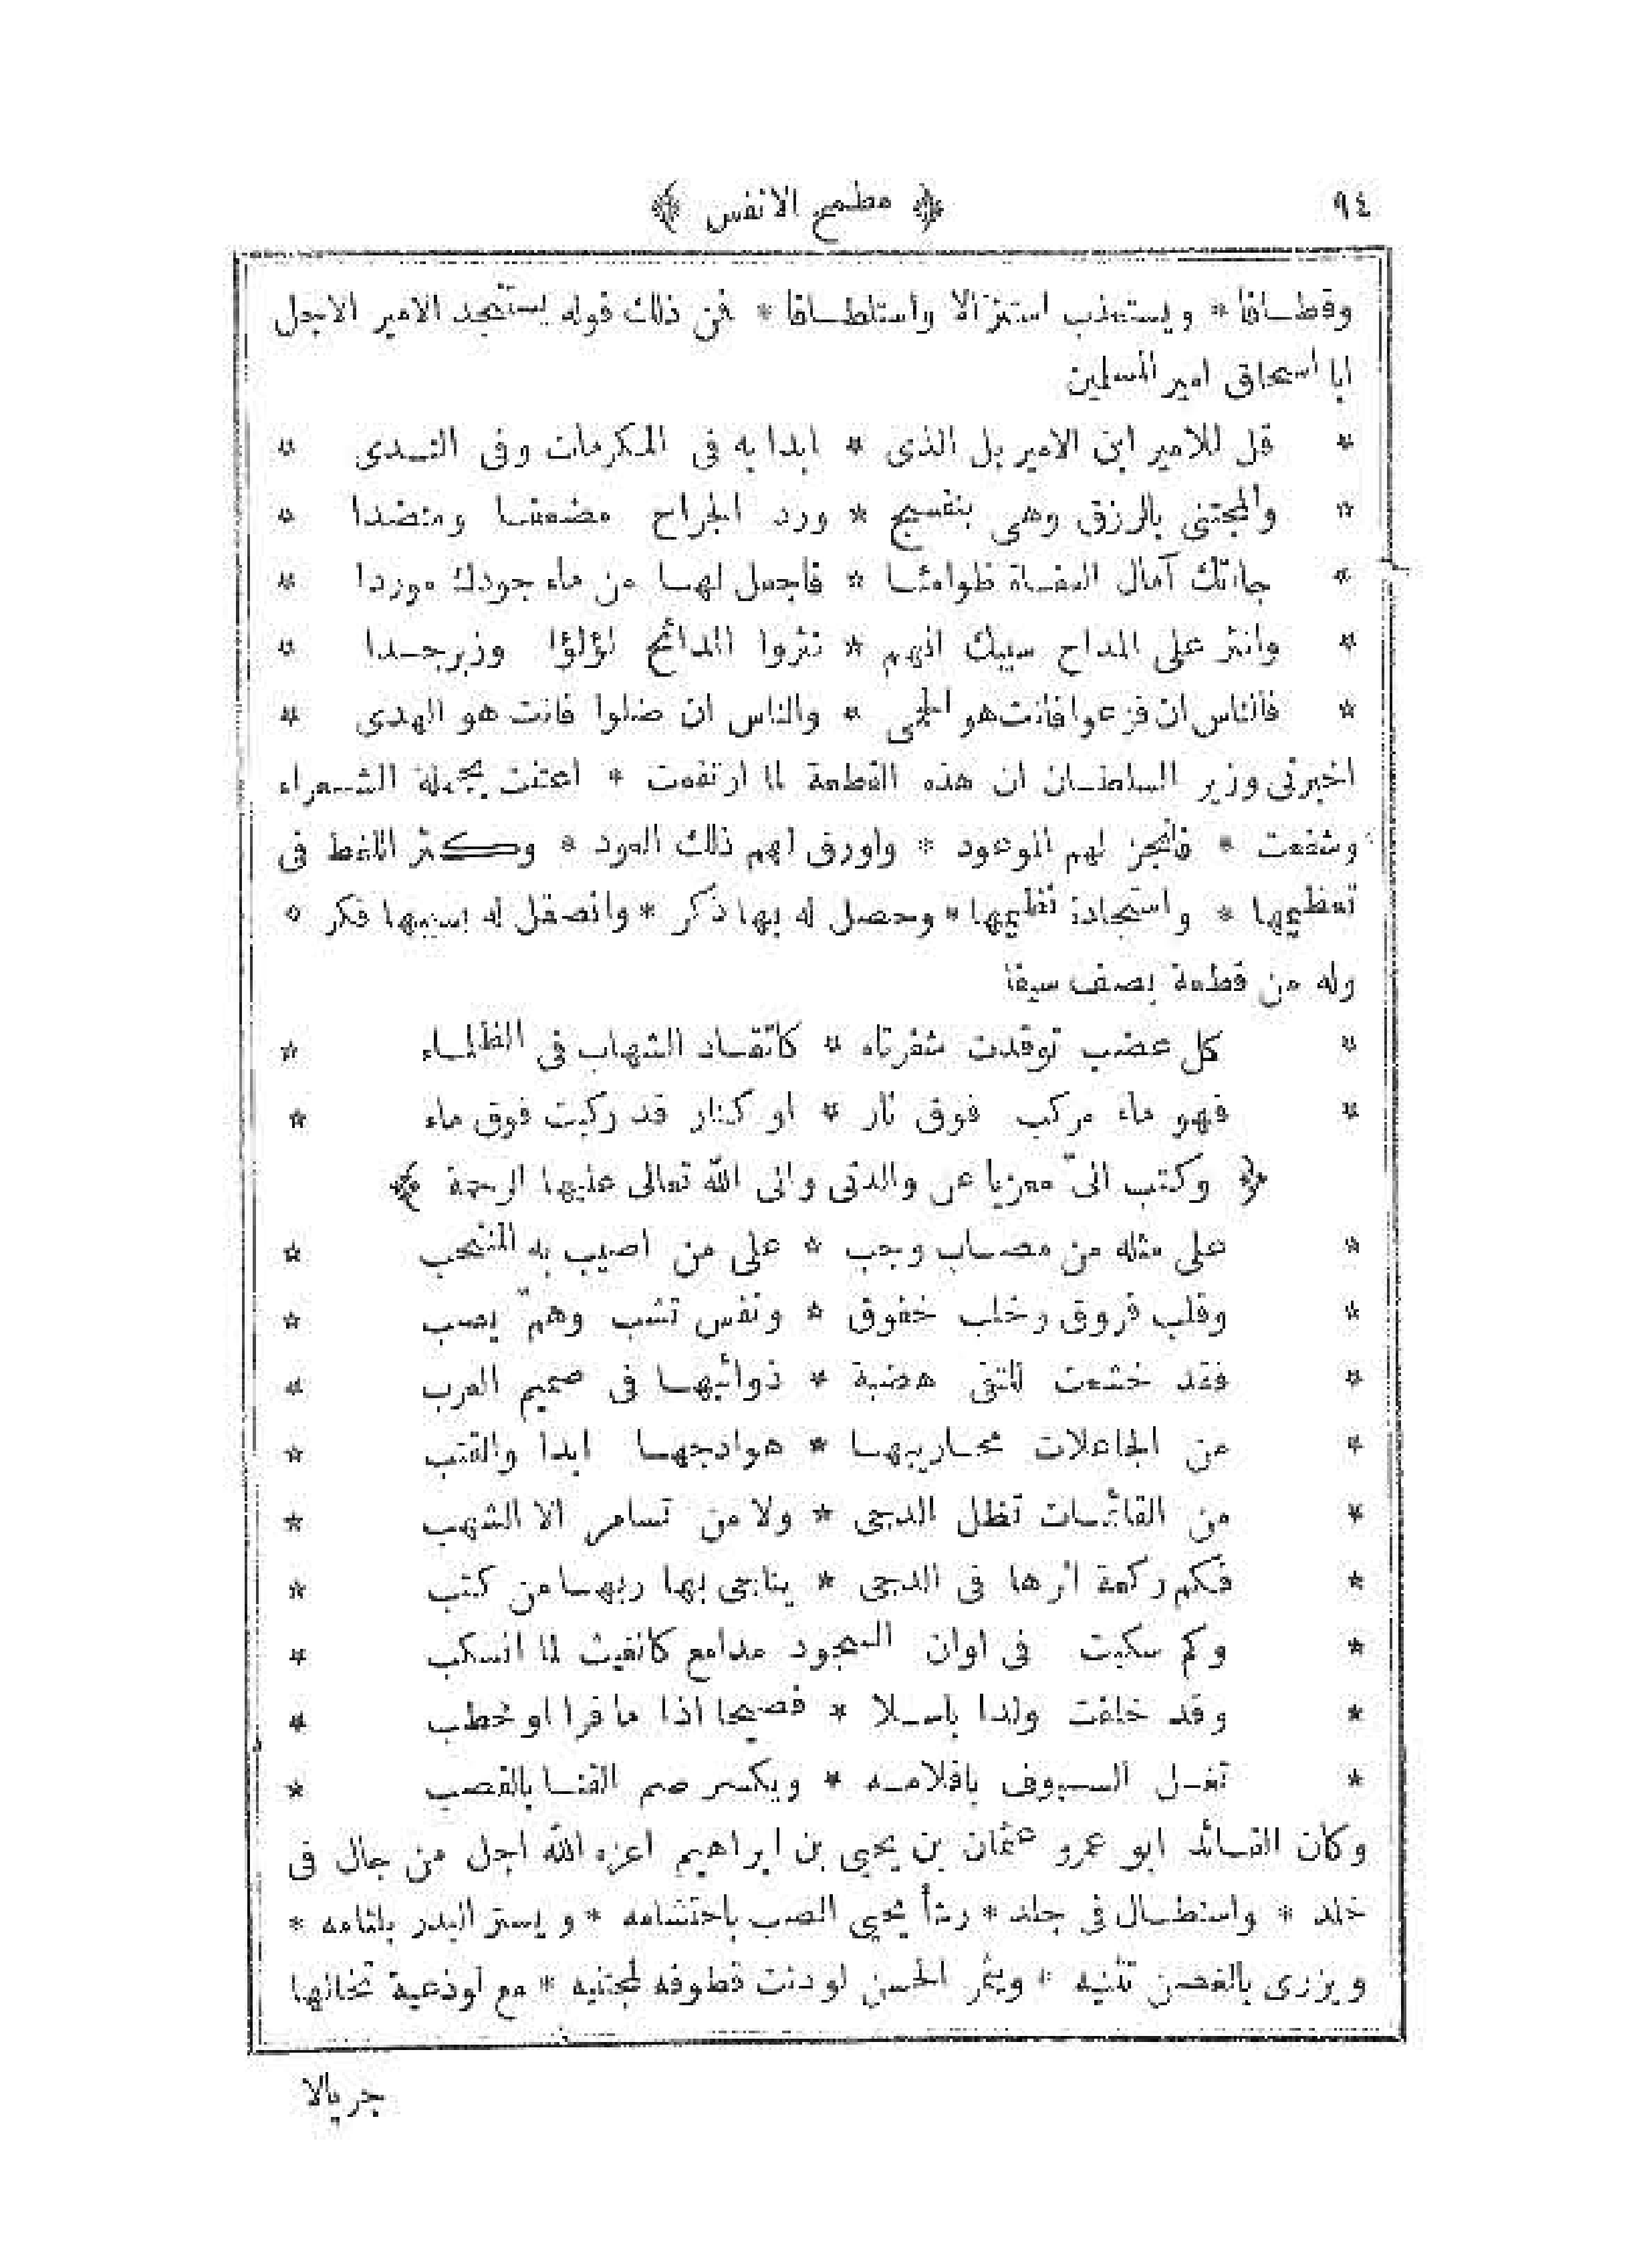 ٩٤ ﴿ مطمح الانفس ﴾
وقطافا * ويستعذب استنزالا واستلطافا * فمن ذلك قوله يستنجد الامير الاجل
ابا اسحاق امير المسلمين
* قل للامير ابن الامير بل الذى * ابدا به فى المكرمات وفى الندى *
* والمجتنى بالرزق وهى بنفسج * ورد الجراح مضعفا ومنضدا *
* جاءتك آمال العفاة ظوامئا * فاجعل لها من ماء جودك موردا *
* وانثر على المداح سيبك انهم * نثروا المدائح لؤلؤا وزبرجدا *
* فالناس ان فزعوا فانت هو الحمى * والناس ان ضلوا فانت هو الهدى *
اخبرنى وزير السلطان ان هذه القطعة لما ارتفعت * اعتنت بجملة الشعراء
وشفعت * فانجز لهم الموعود * واورق لهم ذلك العود * وكثر اللغط فى
تعظيمها * واستجادة نظيمها * وحصل له بها ذكر * وانصقل له بسببها فكر *
وله من قطعة يصف سيفا
* كل عضب توقدت شفرتاه * كاتقاد الشهاب فى الظلماء *
* فهو ماء مركب فوق نار * او كنار قد ركبت فوق ماء *
﴿ وكتب الىّ معزيا عن والدتى والى الله تعالى عليها الرحمة ﴾
* على مثله من مصاب وجب * على من اصيب به المنتحب *
* وقلب فروق وخلب خفوق * ونفس تشب وهمّ يصب *
* فقد خشعت للتقى هضبة * ذوائبها فى صميم العرب *
* من الجاعلات محاريبها * هوادجها ابدا والقتب *
* من القائمات تظل الدجى * ولا من تسامر الا الشهب *
* فكم ركعة اثرها فى الدجى * يناجى بها ربها من كثب *
* وكم سكبت فى اوان السجود مدامع كالغيث لما انسكب *
* وقد خلفت ولدا باسلا * فصيحا اذا ما قرا او خطب *
* تفل السيوف باقلامه * ويكسر صم القنا بالقصب *
وكان القائد ابو عمرو عثمان بن يحيى بن ابراهيم اعزه الله اجل من جال فى
خلد * واستطال فى جلد * رشأ يحيى الصب باحتشامه * ويستر البدر بلثامه *
ويزرى بالغصن تثنيه * ويثمر الحسن لو دنت قطوفه لمجتنيه * مع لوذعية تخالها
جريالا